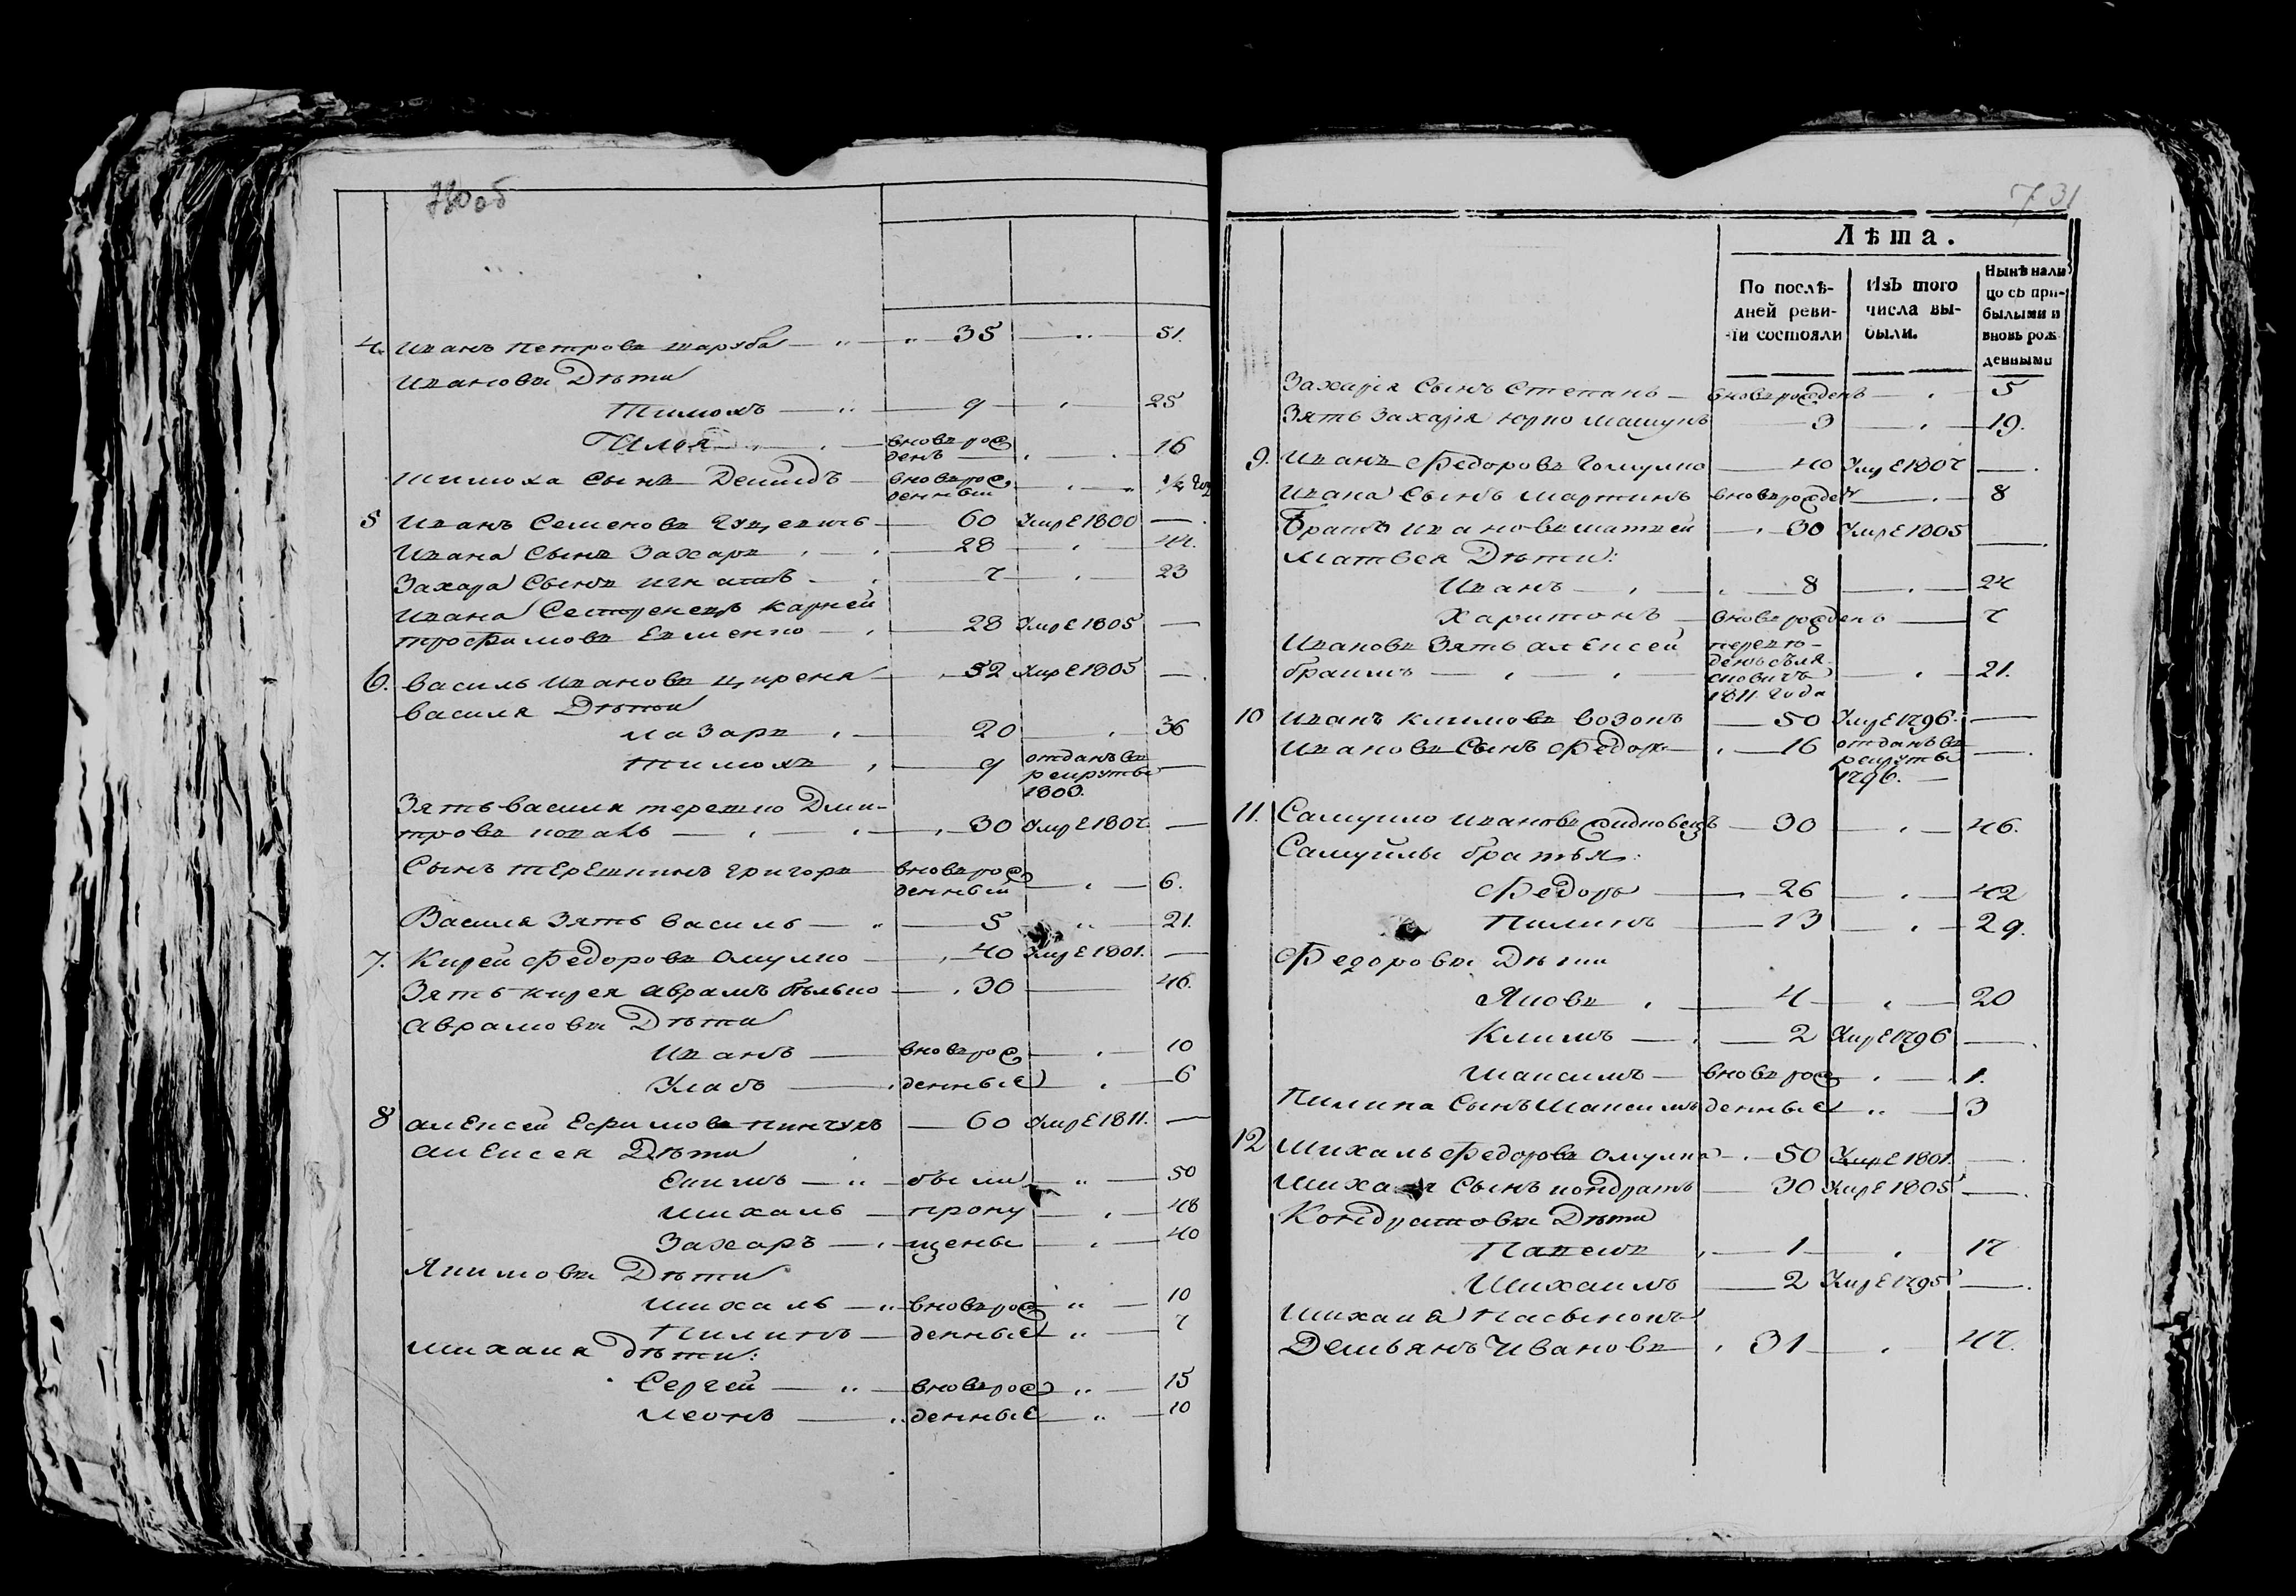 730об
4. Иванъ Петровъ шаруба 35 51.
Ивановы Дѣти
Тимохъ 9 25
Илья вновь рож
денъ 16
Тимоха Сынъ Демидъ вновь рож
денный 1/2 год
5 Иванъ Семеновъ Гуцевичь 60 Умре 1800
Ивана Сынъ Захаръ 28 44.
Захара Сынъ Игнатъ 7 23
Ивана Сестренецъ Карней
трофимовъ Евменко 28 Умре 1805
6. Василь Ивановъ Цирена 52 Умре 1805
Василя Дѣти
Лазаръ 20 36
Тимохъ 9 отданъ въ
рекруты
1803.
Зять василя терешко Дми-
тровъ коваль 30 Умре 1807.
Сынъ терешкинъ григоръ вновь рож
денный 6.
Василя Зять василь 5 21.
7. Кирей Федоровъ Омулко 40 Умре 1801.
Зять кирея аврамъ бѣлько 30 46.
аврамовы Дѣти
Иванъ вновь рож 10
Уласъ денные 6
8 алексей Ефимовъ пинчукъ 60 Умре 1811.
алексея Дѣти
Екимъ были 50
Михаль пропу 48
Захаръ щены 40
Якимовы Дѣти
Михаль вновь рож 10
Пилипъ денные 7
Михаля дѣти:
Сергей вновь рож 15
Леонъ денные 10
731
Лѣта.
По послѣ-
дней реви-
зіи состояли
Изъ того
числа вы-
были.
Нынѣ нали
цо съ при-
былыми и
вновь рож
денными
Захарія Сынъ Степанъ вновь рожденъ 5
Зять Захарія юрко машукъ 3 19.
9. Иванъ Федоровъ Гомулко 40 Умре 1807
Ивана Сынъ Мартинъ вновь рожден 8
Братъ Ивановъ матвей 30 Умре 1805
Матвея Дѣти:
Иванъ 8 24
Харитонъ вновь рожденъ 7
Ивановъ Зять алексей
браимъ 1811 года 21.
10 Иванъ климовъ возокъ 50 Умре 1796.
Ивановъ Сынъ Федоръ 16 отданъ въ
рекруты
1796.
11. Самуйло Ивановъ 30 46.
Самуйлы братья:
Федоръ 26 42
Пилипъ 13 29.
Федоровы Дѣти
Яковъ 4 20
Климъ 2 Умре 1796
Максимъ вновь рож 1.
Пилипа Сынъ Максимъ денные 3
12 Михаль Федоровъ Омулко 50 Умре 1801.
Михаля Сынъ кондратъ 30 Умре 1805
Кондратовы Дѣти
Павелъ 1 17
Михаилъ 2 Умре 1795
Михаля Пасынокъ
Демьянъ Ивановъ 31 47.